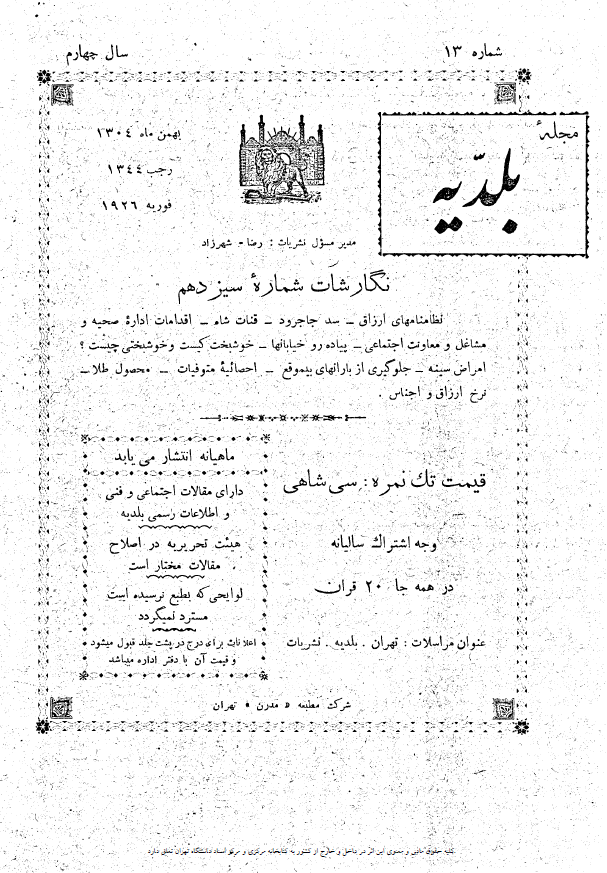 شماره ۱۳
سال چهارم
مجلهٔ
بلدّیه
بهمن ماه ۱۳۰٤
رجب ۱۳٤٤
فوریه ۱۹۲٦
مدیر مسؤل نشریات : رضا - شهرزاد
نگارشات شمارهٔ سیزدهم
نظامنامهای ارزاق ــ سد جاجرود ــ قنات شاه ــ اقدامات ادارهٔ صحیه و
مشاغل و معاونت اجتماعی ــ پیاده رو خیابانها ــ خوشبخت کیست و خوشبختی چیست ؟
امراض سینه ــ جلوگیری از بارانهای بیموقع ــ احصائیهٔ متوفیات ــ محصول طلا ــ
نرخ ارزاق و اجناس .
قیمت تك نمره : سی شاهی
وجه اشتراك سالیانه
در همه جا ۲۰ قران
عنوان مراسلات : تهران . بلدیه . نشریات
ماهیانه انتشار می یابد
دارای مقالات اجتماعی و فنی
و اطلاعات رسمی بلدیه
هیئت تحریریه در اصلاح
مقالات مختار است .
لوایحی که بطبع نرسیده است
مسترد نمیگردد
اعلانات برای درج در پشت جلد قبول میشود
و قیمت آن با دفتر اداره میباشد
شرکت مطبعه « مدرن » تهران
کلیه حقوق مادی و معنوی این اثر در داخل و خارج از کشور به کتابخانه مرکزی و مرکز اسناد دانشگاه تهران تعلق دارد